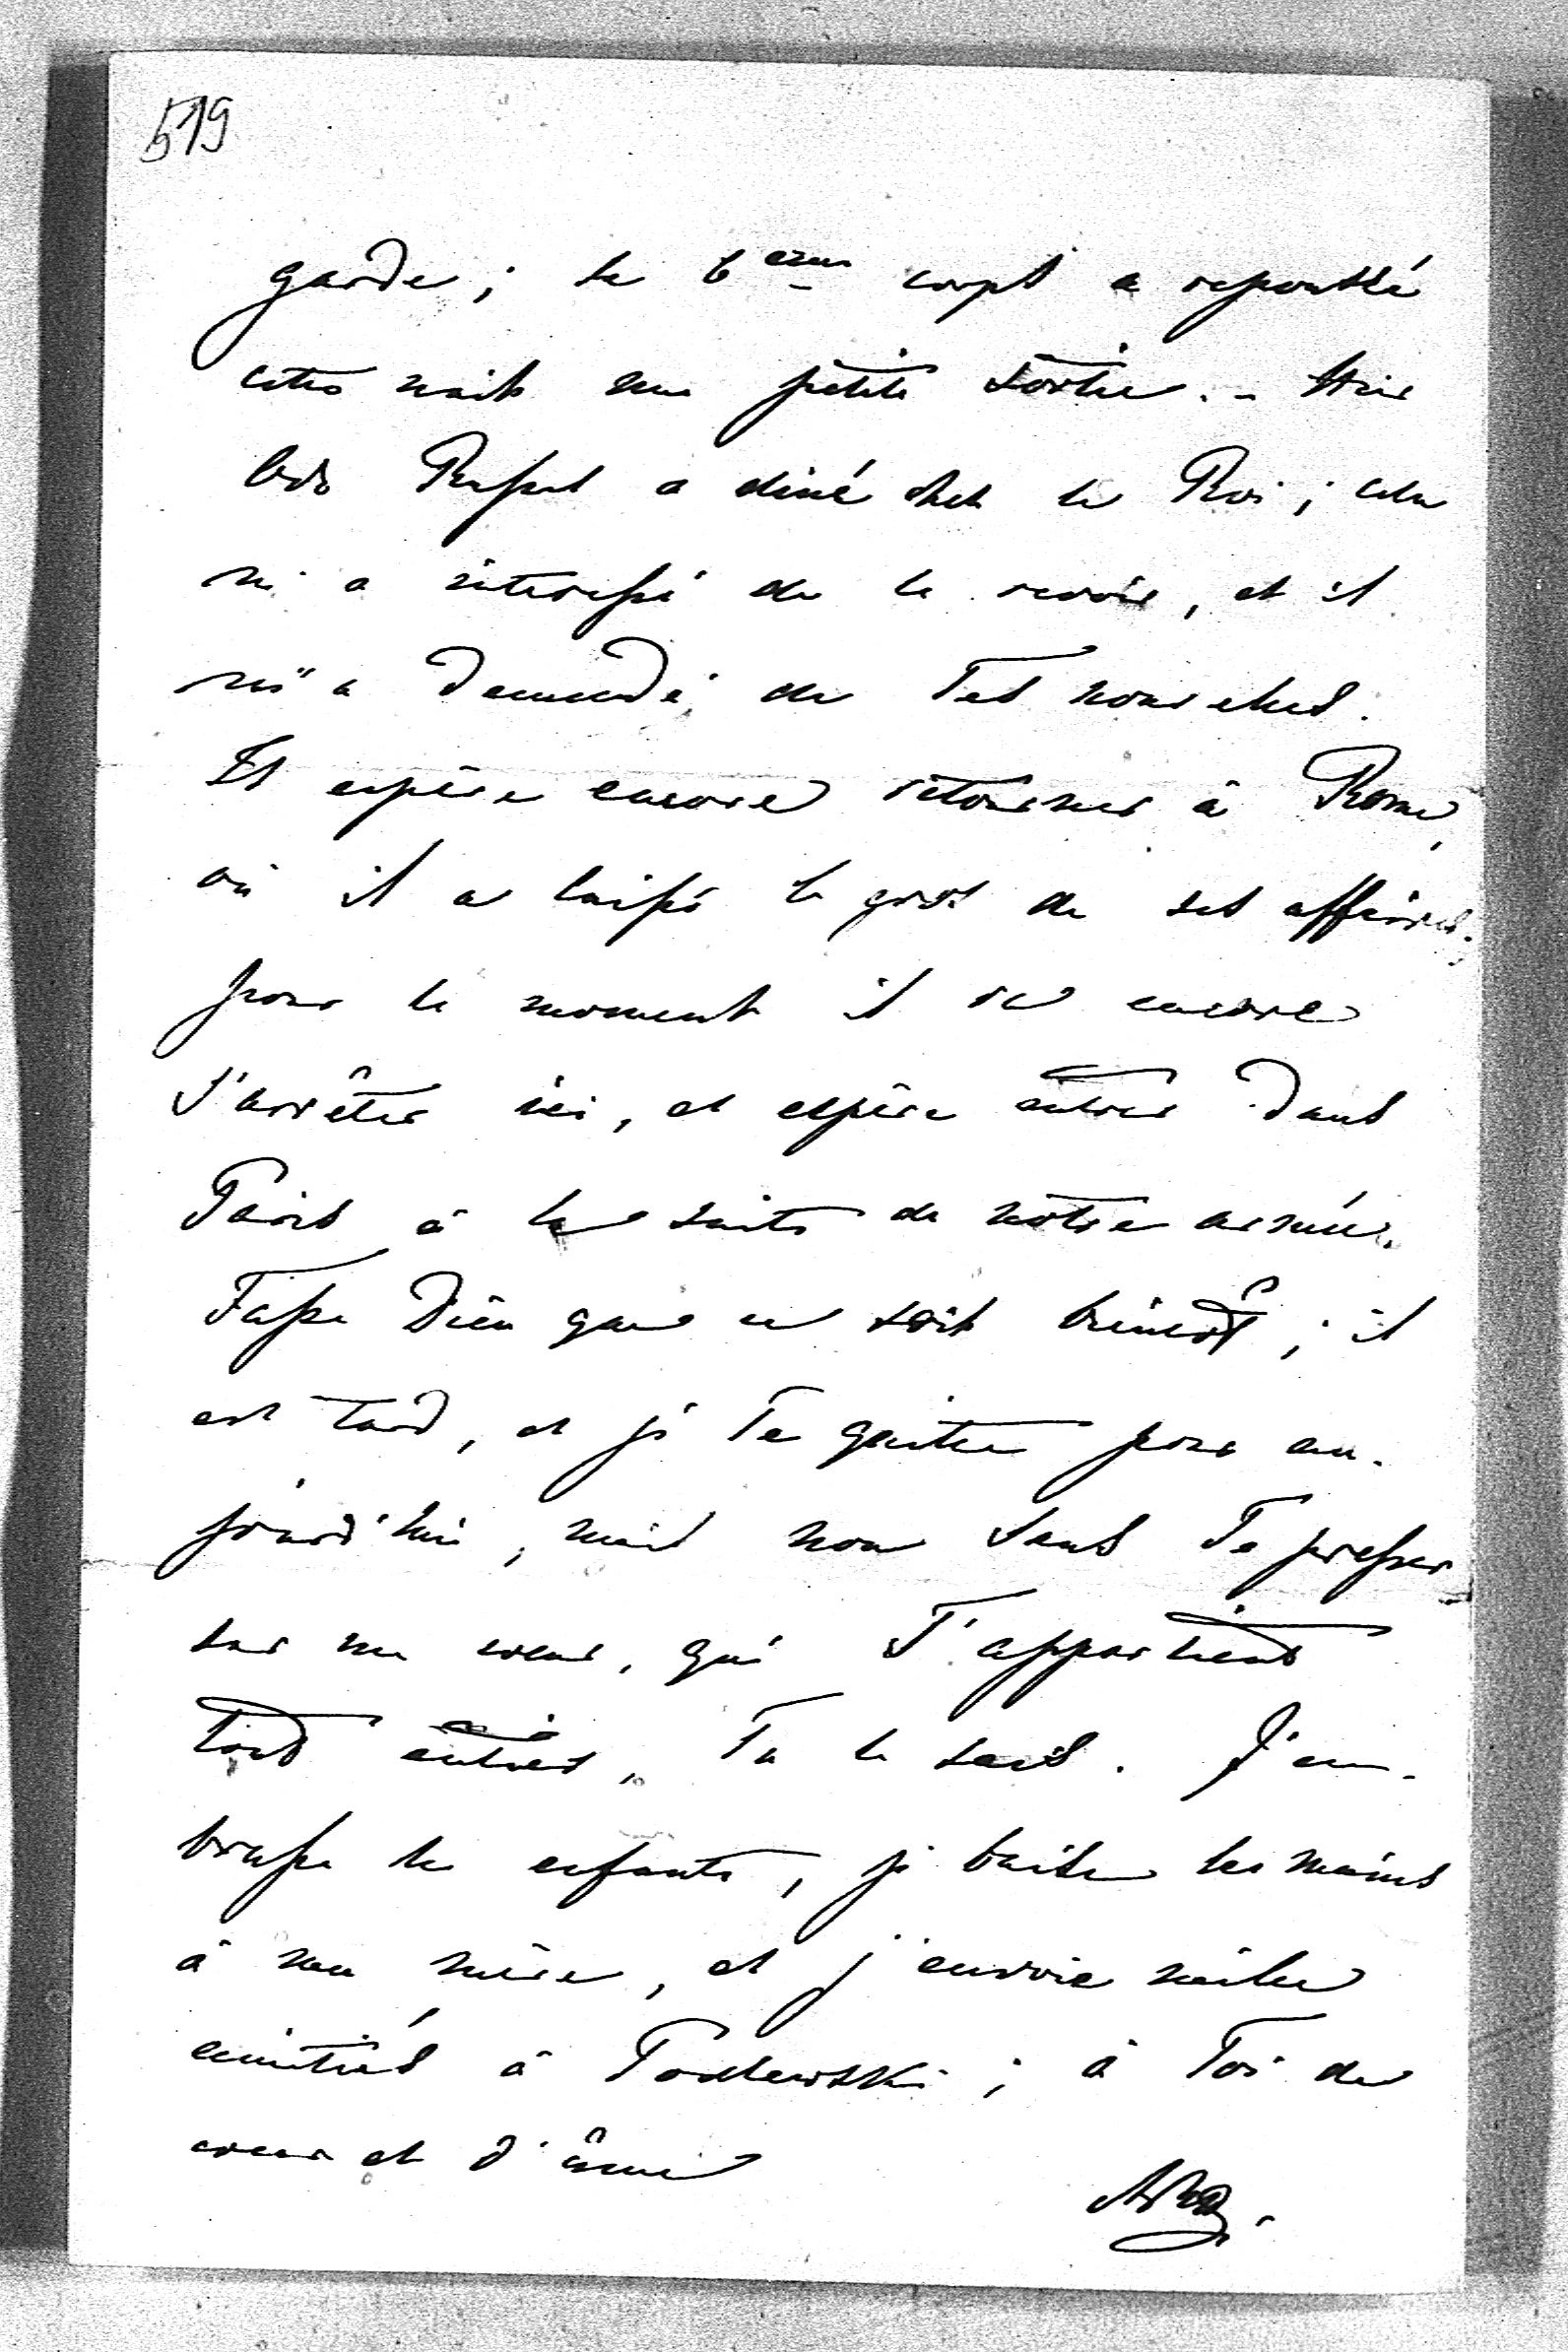 519
garde; le 6ème corps a repoussé
cette nuit une petite sortie. – Hier
Odo Russel a diné chez le Roi; cela
m'a interessé de le revoir, et il
m'a demandé de Tes nouvelles.
Il espère encore retourner à Rome,
où il a laissé le gros de ses affaires.
pour le moment il va encore
s'arrêter ici, et espère entrer dans
Paris à la suite de notre armée.
Fasse Dieu que ce soit bientôt; il
est tard, et je Te quitte pour au-
jourd'hui, mais non sans Te presser
sur mon coeur, qui T'appartient
tout entier, Tu le sais. J'em-
brasse les enfants, je baise les mains
à ma mère, et j'envoie mille
amitiés à Podlewski; à Toi de
coeur et d'âme